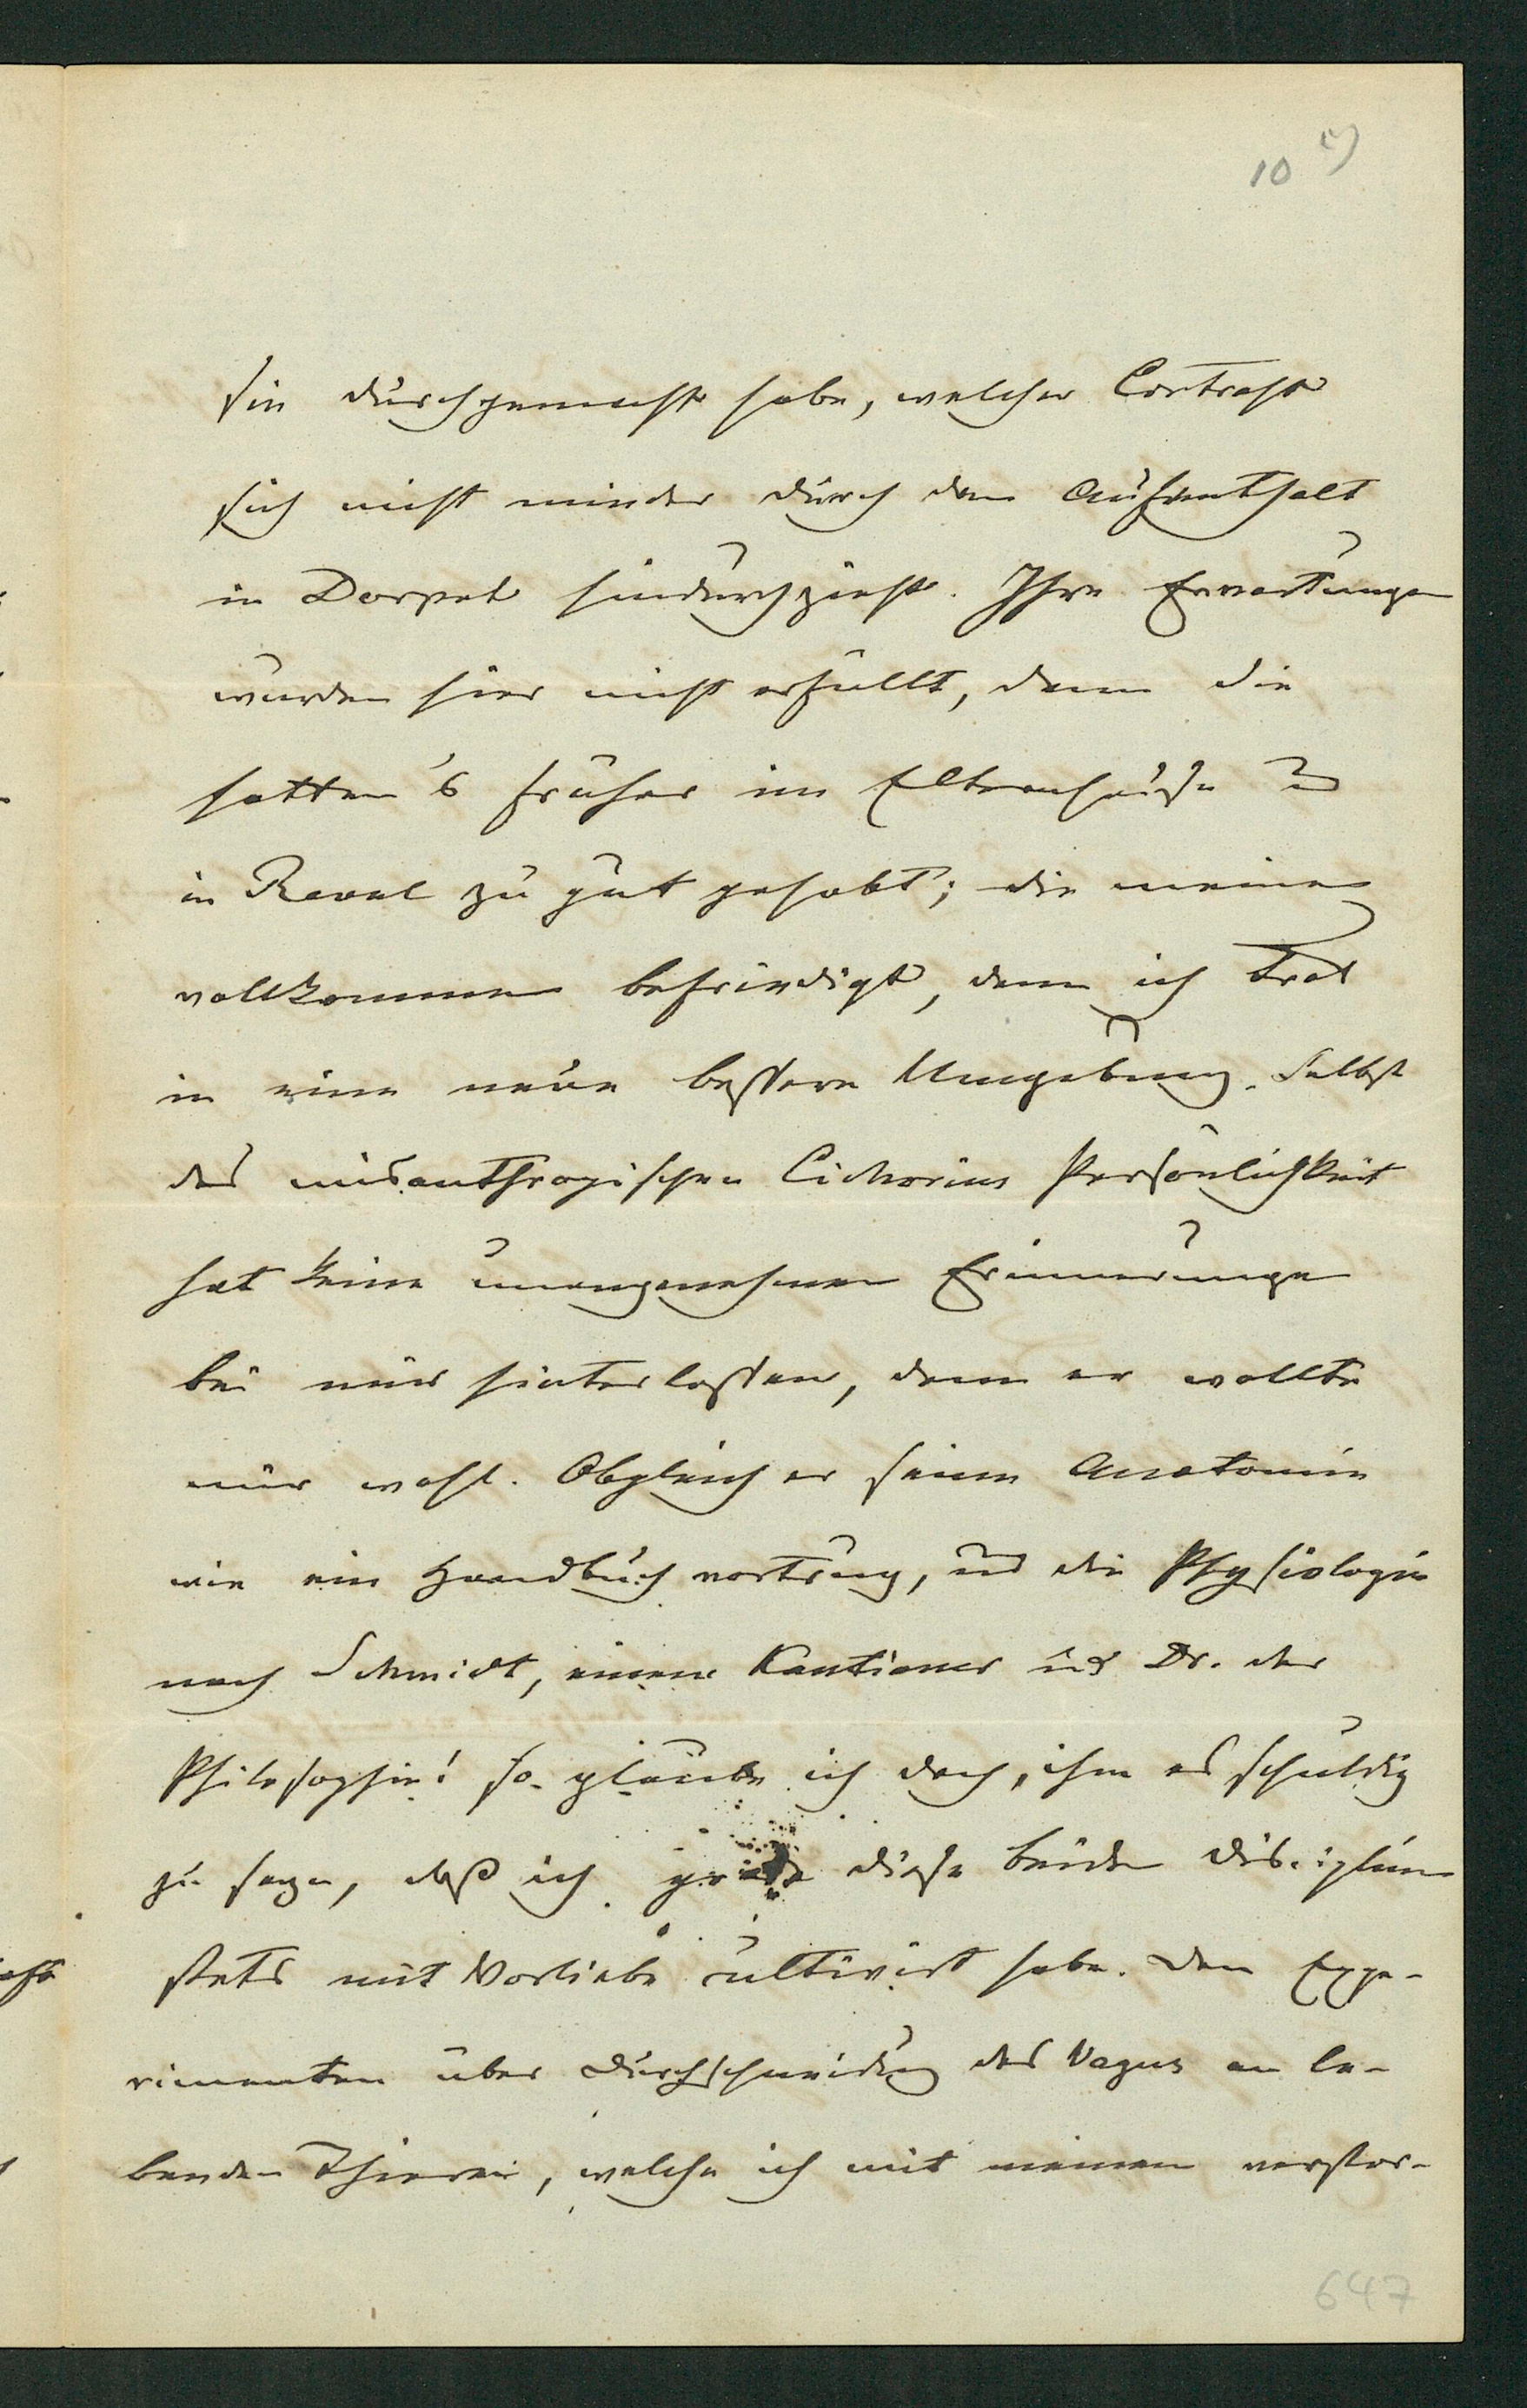 10 c)
Sie durchgemacht habe, welcher Contrast
sich nicht minder durch den Aufenthalt
in Dorpat hindurchzieht. Ihre Erwartungen
wurden hier nicht erfüllt, denn Sie
hatten's früher im Elternhause und
in Reval zu gut gehabt; die meinen
vollkommen befriedigt, denn ich trat
in eine neue bessere Umgebung. Selbst
des misanthropischen Cichorius Persönlichkeit
hat keine unangenehmen Erinnerungen
bei mir hinterlassen, denn er wollte
mir wohl. Obgleich er seine Anatomie
wie ein Handbuch vortrug, und die Physiologie
nach Schmidt, einem Kantianer und Dr. der
Philosophie! so glaube ich doch, ihm es schuldig
zu sagen, daß ich grade diese beiden Disciplinen
stets mit Vorliebe cultivirt habe. Den Expe-
rimenten über Durchschneidung des Vagus an le-
benden Thieren, welche ich mit meinem verstor-
647